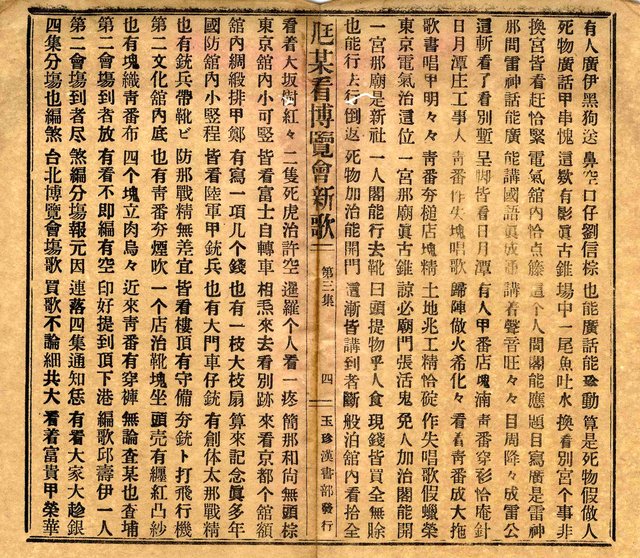 有人廣伊黑狗送 鼻空口仔劉信棕 也能廣話能動 算是死物假做人
死物廣話甲串愧 這欵有影眞古錐 塲中一尾魚吐水 換看別宮个事非
換宮皆看赶恰緊 電氣舘內恰点簝 這个人閣閣能應 題目寫廣是雷神
那間雷神話能廣 能講國語眞成通 講着聲音旺々々 目周降々成雷公
這斬看了看別塹 呆脚皆看日月潭 有人甲番店塊滿 靑番穿彩恰庵針
日月潭庄工事人 靑番作失塊唱歌 歸陣做火希化々 看着靑番成大拖
歌書唱甲明々々 靑番夯槌店塊精 土地兆工精恰碇 作失唱歌假蠟榮
東京電氣治這位 一宮那廟眞古錐 諒必廟門張活鬼 免人加治閣能開
一宮那廟是新社 一人閣能行去靴 曰頭提物乎人食 現錢皆買全無賒
也能行去行倒返 死物加治能開門 這漸皆講到者斷 般泊舘內看拾全
尫某看博覽會新歌 第三集 四 玉珍漢書部發行
看着大坂樹紅々 二隻死虎治許空 暹羅个人看一疼 簡那和尚無頭棕
東京舘內小可竪 皆看富士自轉車 相焏來去看別跡 來看京都个舘額
舘內綢緞排甲鄭 有寫一項几个錢 也有一枝大枝扇 算來記念眞多年
國防舘內小竪程 皆看陸軍甲銃兵 也有大門車仔銃 有創体太那戰精
也有銃兵帶靴ビ 防那戰精無差宜 皆看樓頂有守備 夯銃卜打飛行機
第二文化舘內底 也有靑番夯煙吹 一个店治靴塊坐 頭壳有纏紅凸紗
也有塊織靑番布 四个塊立肉烏々 近來靑番有穿褲 無論查某也查埔
第二會塲到者放 有看不即編有空 印好提到頂下港 編歌邱壽伊一人
第二會塲到者尽 煞編分塲報元因 連落四集通知恁 有看大家大趁銀
四集分塲也編煞 台北博覽會塲歌 買歌不論細共大 看着富貴甲榮華